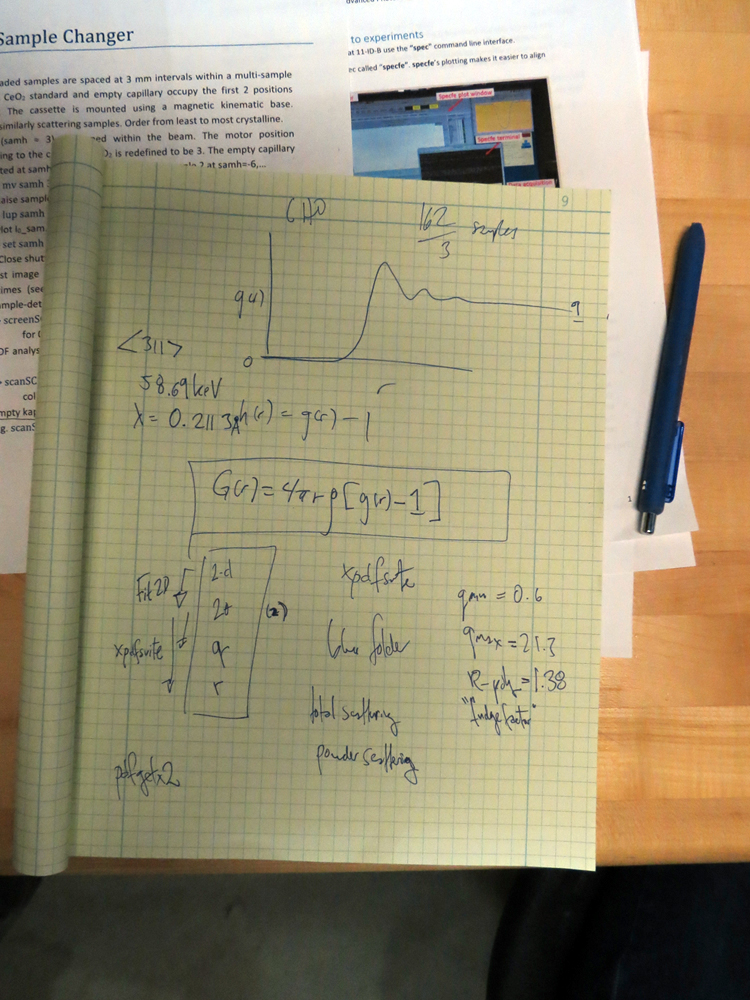 Sample Changer
aded samples are spaced at 3 mm intervals within a multi-sample
CeO₂ standard and empty capillary occupy the first 2 positions
The cassette is mounted using a magnetic kinematic base.
similarly scattering samples. Order from least to most crystalline.
(samh = 3 ed within the beam. The motor position
ing to the c O₂ is redefined to be 3. The empty capillary
ted at samh 2 at samh=-6,...
mv samh
aise sampl
lup samh
lot I₀_sam
set samh
Close shut
st image
imes (see
mple-det
screenS
for
DF analys
scanSC
col
mpty kap
g. scanS
to experiments
at 11-ID-B use the "spec" command line interface.
ec called "specfe". specfe's plotting makes it easier to align
Specfe plot window
Specfe terminal
1
9
162/3 samples
g(r)
0
r
<311>
58.69 keV
λ = 0.2113 Å
h(r) = g(r) - 1
G(r) = 4πrρ[g(r) - 1]
Fit2D
xpdfsuite
2-d
2θ
q
r
xpdfsuite
blue folder
total scattering
powder scattering
qmin = 0.6
qmax = 21.3
R-poly = 1.38
"fudge factor"
pdfgetx2